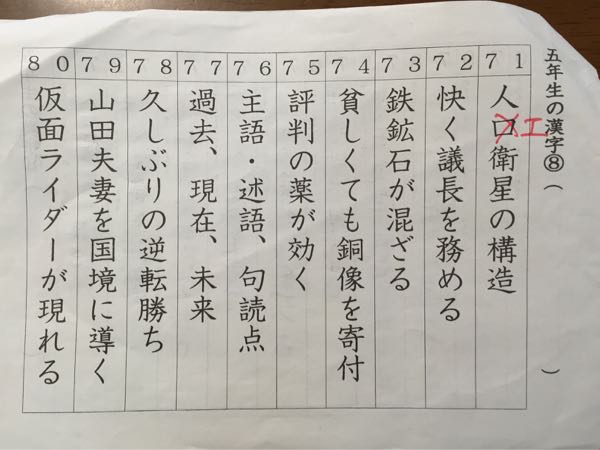 五年生の漢字⑧( )
71 人口エ衛星の構造
72 快く議長を務める
73 鉄鉱石が混ざる
74 貧しくても銅像を寄付
75 評判の薬が効く
76 主語・述語、句読点
77 過去、現在、未来
78 久しぶりの逆転勝ち
79 山田夫妻を国境に導く
80 仮面ライダーが現れる